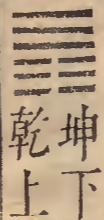 坤下
乾上